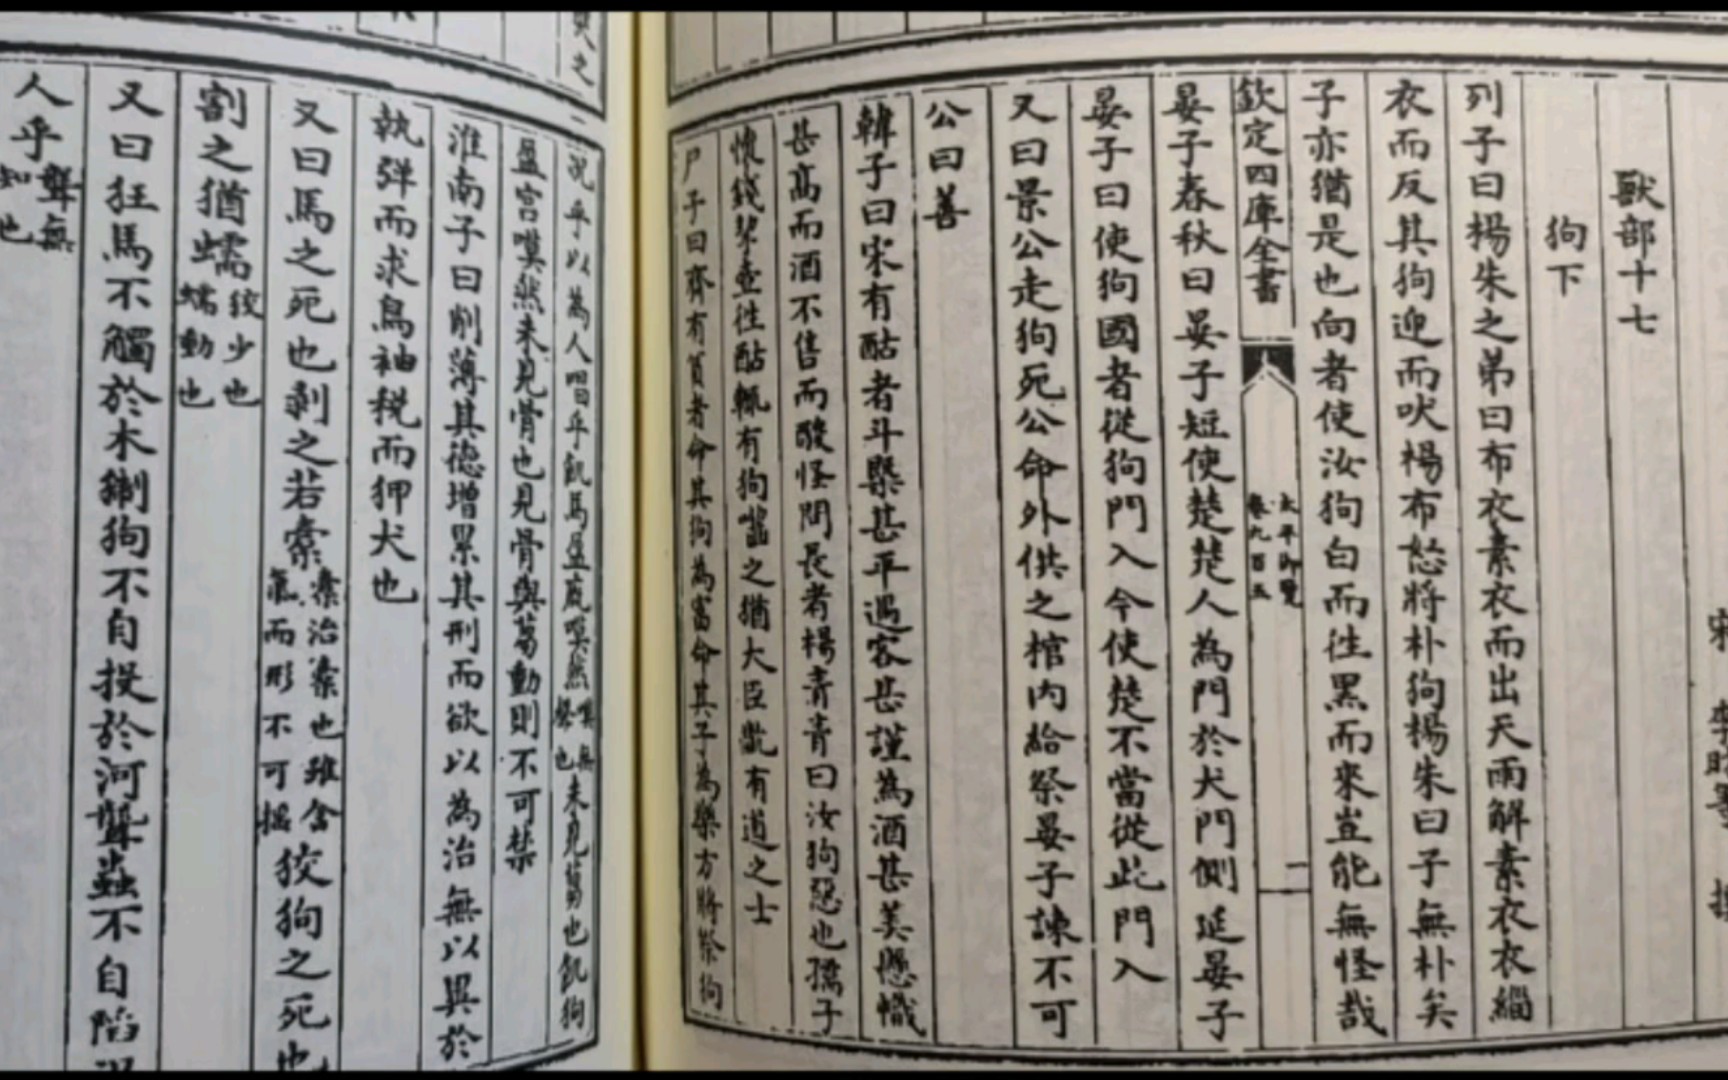 獸部十七
狗下
列子曰楊朱之弟曰布衣素衣而出天雨解素衣衣緇
衣而反其狗迎而吠楊布怒將朴狗楊朱曰子無朴矣
子亦猶是也向者使汝狗白而徃黑而來豈能無怪哉
欽定四庫全書
太平御覽
卷九百五
二
晏子春秋曰晏子短使楚楚人為門於犬門側延晏子
晏子曰使狗國者從狗門入今使楚不當從此門入
又曰景公走狗死公命外供之棺内給祭晏子諫不可
公曰善
韓子曰宋有酤者斗槩甚平遇客甚謹為酒甚美懸幟
甚髙而酒不售而酸怪問長者楊青青曰汝狗惡也孺子
懷錢挈壺徃酤輒有狗齧之猶大臣齕有道之士
尸子曰齊有貧者命其狗為富命其子為樂方將祭狗
况乎以為人
乎飢馬盈廄嘆然
嘆無
聲也
未見芻也飢狗
盈宫嘆然未見骨也見骨與芻動則不可禁
淮南子曰削薄其德增累其刑而欲以為治無以異於
執弾而求鳥袖稅而狎犬也
又曰馬之死也剥之若槀
槀治槀也雖含
氣而形不可搖
狡狗之死也
割之猶蠕
狡少也
蠕動也
又曰狂馬不觸於木猘狗不自投於河聾蟲不自陷
人乎
聾無
知也